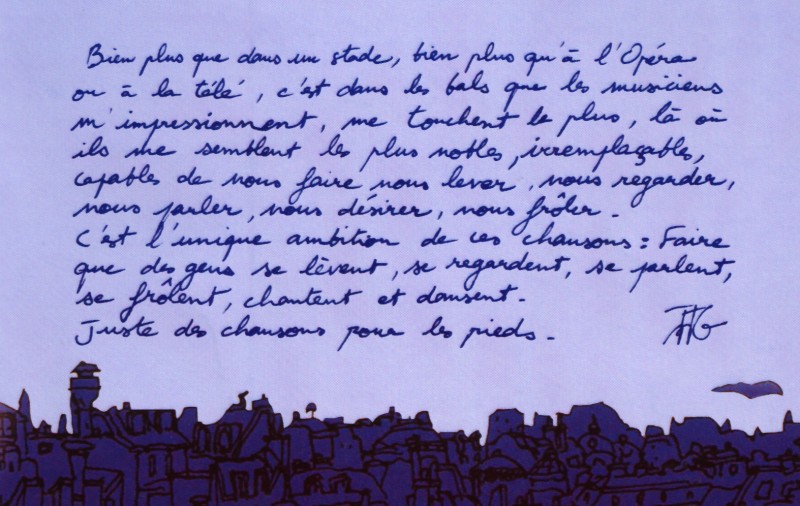 Bien plus que dans un stade, bien plus qu'à l'Opéra
ou à la télé, c'est dans les bals que les musiciens
m'impressionnent, me touchent le plus, là où
ils me semblent les plus nobles, irremplaçables,
capables de nous faire nous lever, nous regarder,
nous parler, nous désirer, nous frôler.
C'est l'unique ambition de ces chansons : Faire
que des gens se lèvent, se regardent, se parlent,
se frôlent, chantent et dansent.
Juste des chansons pour les pieds.
JJG